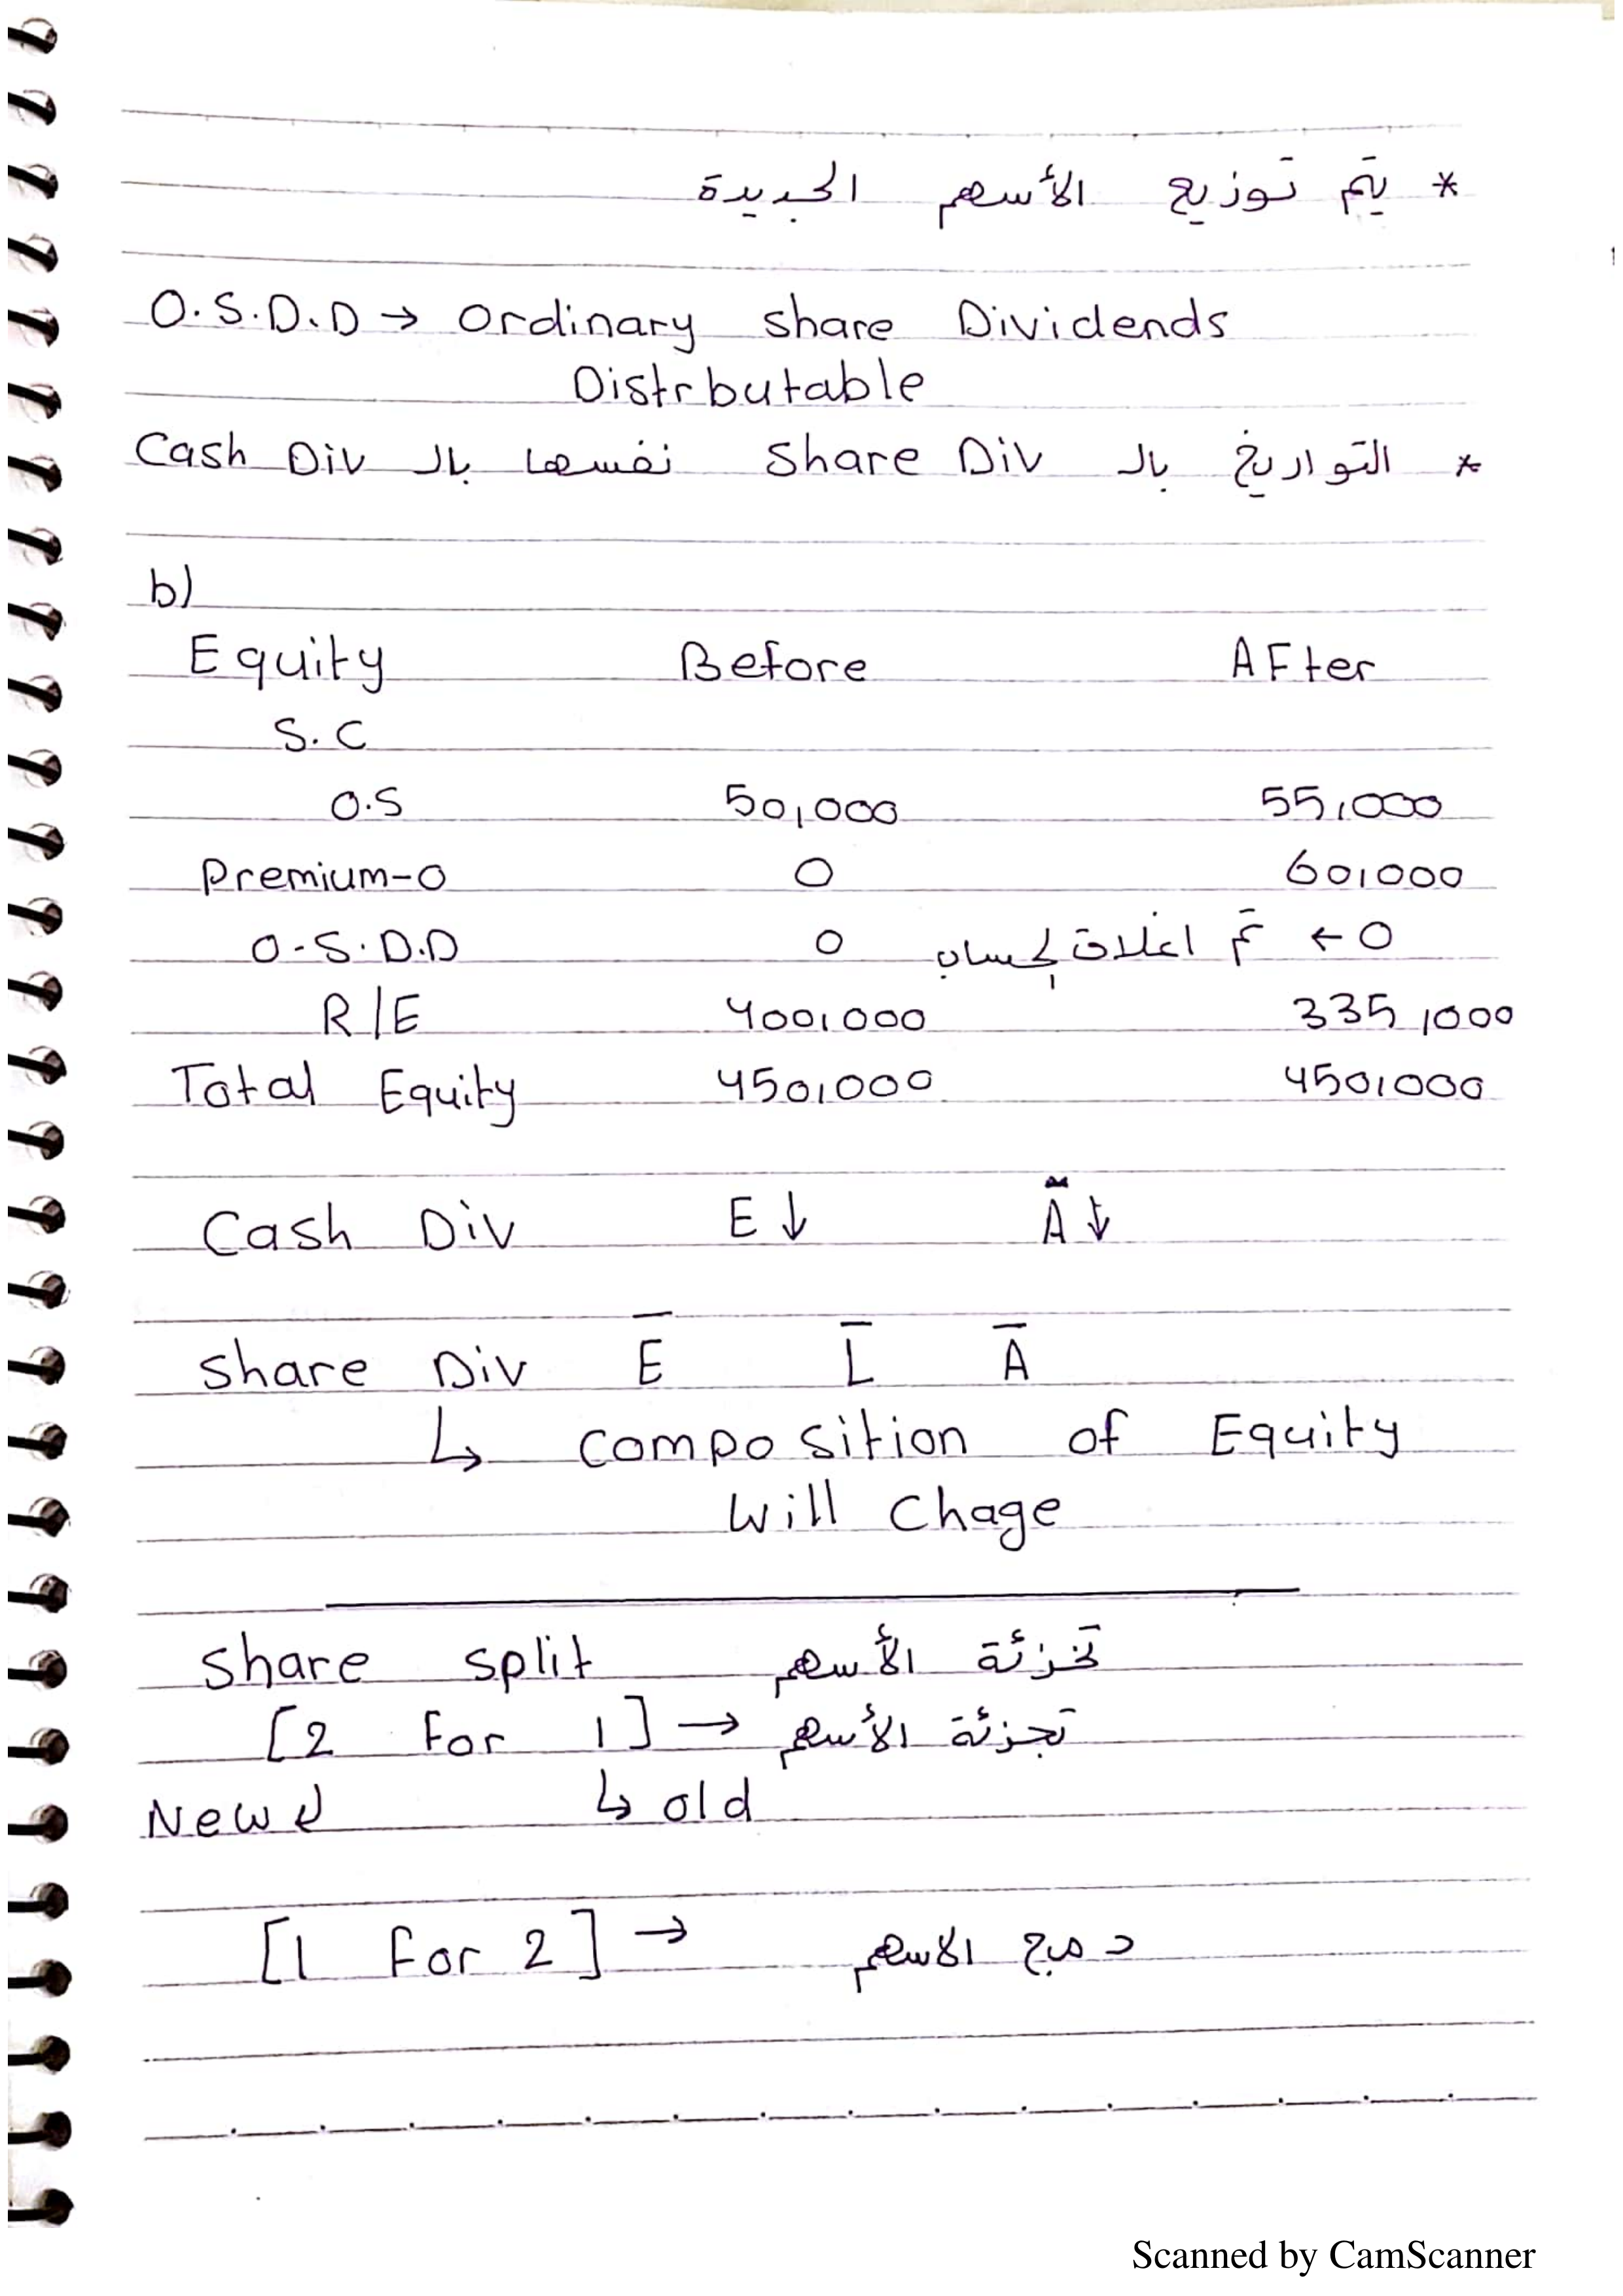 * يتم توزيع الأسهم الجديدة
O.S.D.D → Ordinary share Dividends
Distrbutable
* التواريخ بالـ Share Div نفسها بالـ Cash Div
b)
Equity Before AFter
S.C
O.S 50,000 55,000
Premium-O 0 60,000
O.S.D.D 0 تم اغلاق الحساب ← 0
R/E 400,000 335,000
Total Equity 450,000 450,000
Cash Div E↓ A↓
Share Div E̅ L̅ A̅
↳ composition of Equity
Will Chage
Share split تجزئة الأسهم
[2 For 1] → تجزئة الأسهم
New ↲ ↳ old
[1 For 2] → دمج الاسهم
Scanned by CamScanner